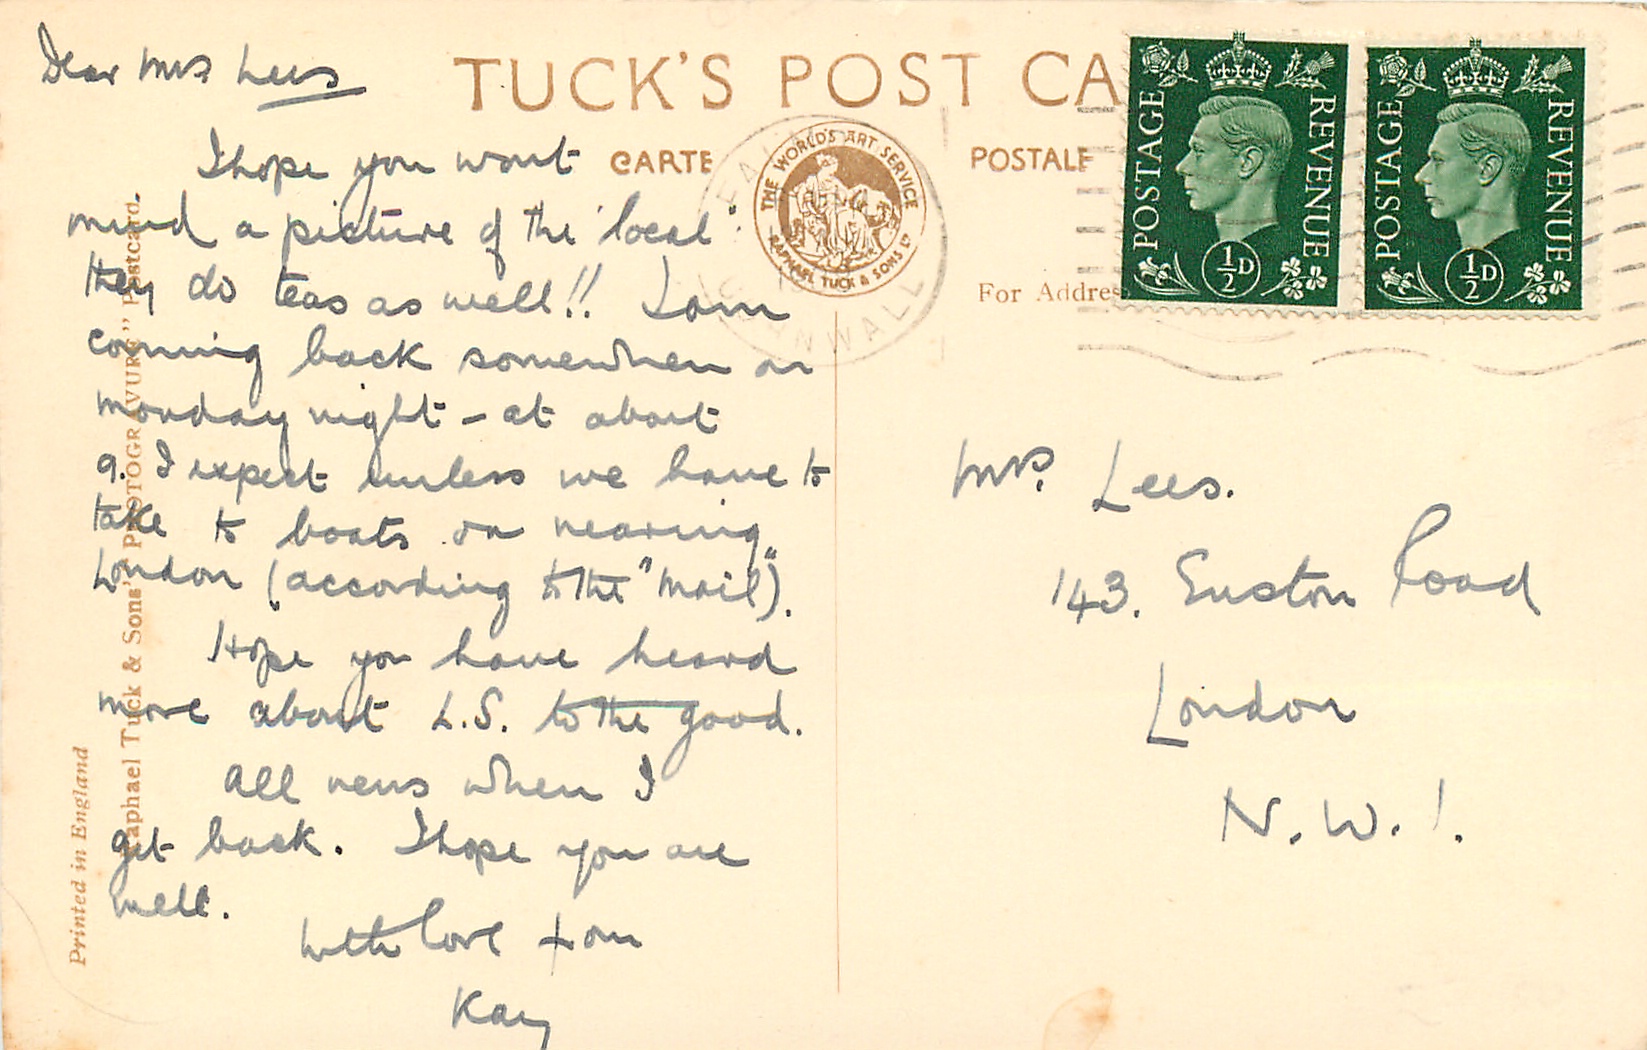 Dear Mrs Lees
TUCK'S POST CA
CARTE POSTALE
THE WORLD'S ART SERVICE
RAPHAEL TUCK & SONS LD
CORNWALL
For Addres
POSTAGE REVENUE
½D
POSTAGE REVENUE
½D
I hope you wont
mind a picture of the 'local':
they do teas as well!! I am
coming back somewhen on
monday night - at about
9. I expect unless we have to
take to boats on nearing
London (according to the "Mail").
Hope you have heard
more about L.S. to the good.
All news when I
get back. I hope you are
well.
With love from
Kay
Mrs. Lees.
143. Euston Road
London
N.W.1.
Raphael Tuck & Sons' "PHOTOGRAVURE" Postcard.
Printed in England